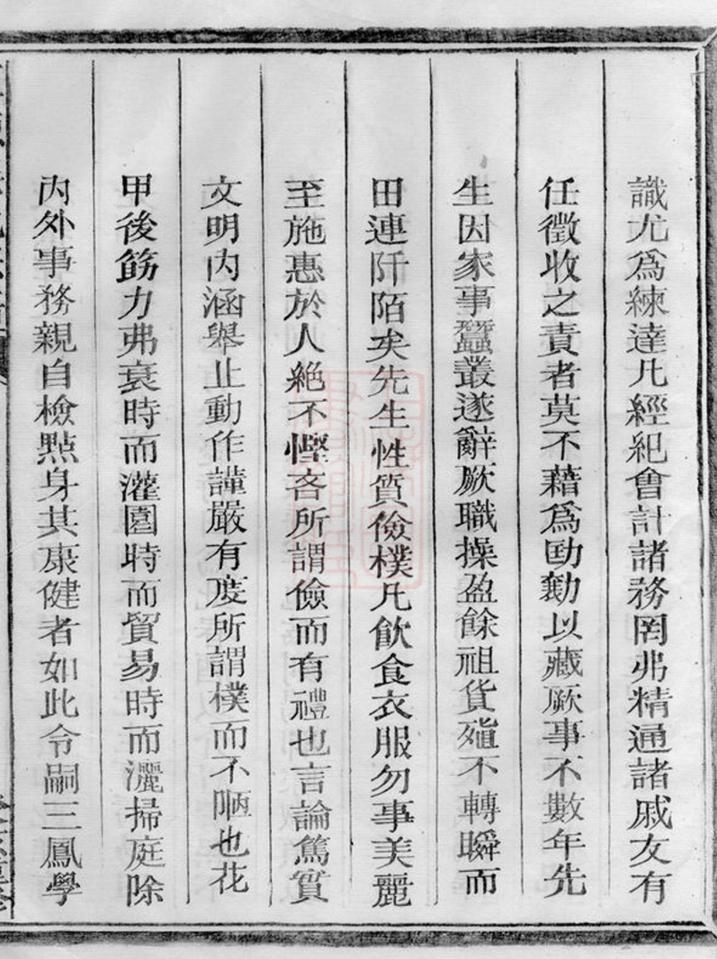 識尤爲練達凡經紀會計諸務罔弗精通諸戚友有
任徵收之責者莫不藉爲劻勷以藏厥事不數年先
生因家事蠶叢遂辭厥職操盈餘祖貨殖不轉瞬而
田連阡陌矣先生性質儉樸凡飲食衣服勿事美麗
至施惠於人絶不慳吝所謂儉而有禮也言論篤實
文明內涵舉止動作謹嚴有度所謂樸而不陋也花
甲後筋力弗衰時而灌園時而貿易時而灑掃庭除
內外事務親自檢點身其康健者如此令嗣三鳳學